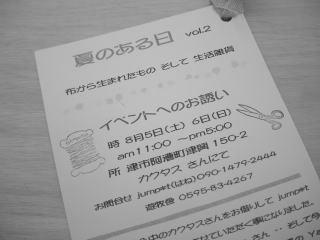 夏のある日 vol.2
布から生まれたもの そして 生活雑貨
イベントへのお誘い
時 8月5日(土) 6日(日)
am11:00 ~pm5:00
所 津市阿漕町津興 150-2
カクタス さんにて
お問合せ jump*t(はね)090-1479-2444
遊牧舎 0595-83-4267
中のカクタスさんをお借りして jump*t
せていただく事になりました。
さん・・そして今